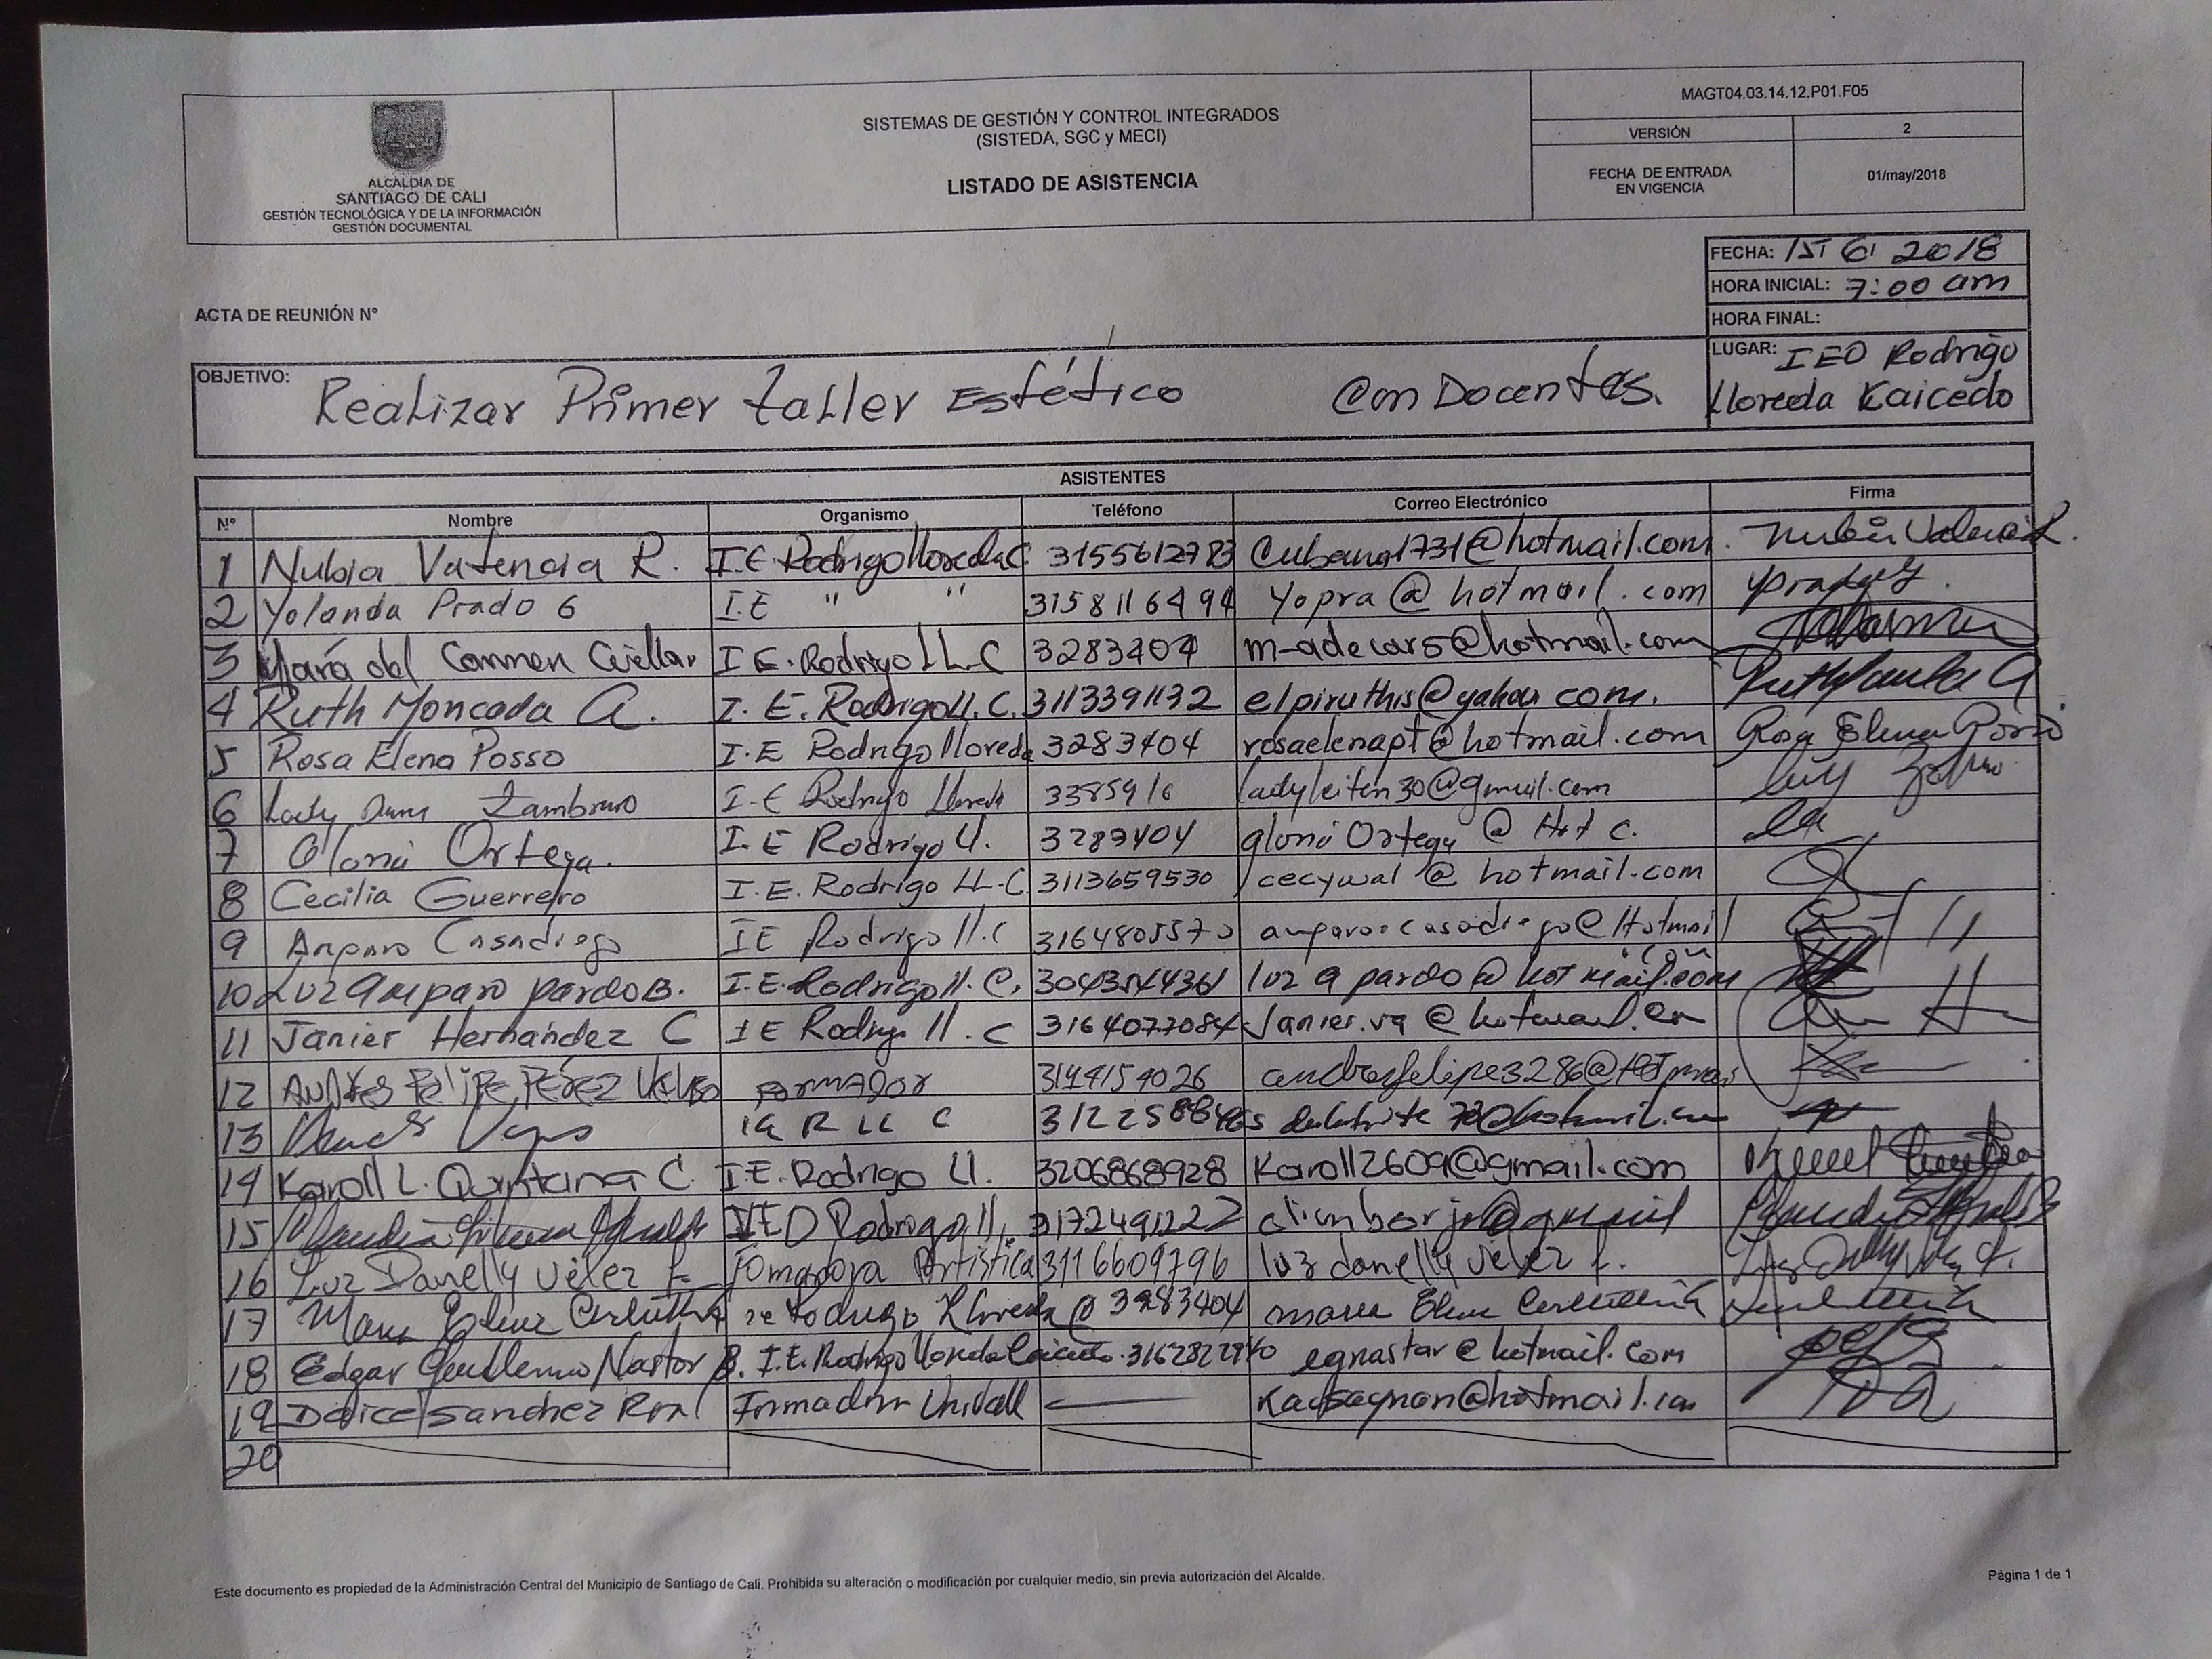 ALCALDÍA DE
SANTIAGO DE CALI
GESTIÓN TECNOLÓGICA Y DE LA INFORMACIÓN
GESTIÓN DOCUMENTAL
SISTEMAS DE GESTIÓN Y CONTROL INTEGRADOS
(SISTEDA, SGC y MECI)
LISTADO DE ASISTENCIA
MAGT04.03.14.12.P01.F05
VERSIÓN 2
FECHA DE ENTRADA
EN VIGENCIA
01/may/2018
FECHA: 15 6 2018
HORA INICIAL: 7:00 am
HORA FINAL:
ACTA DE REUNIÓN N°
LUGAR: IEO Rodrigo
Lloreda Kaicedo
OBJETIVO: Realizar Primer taller Estético Con Docentes.
ASISTENTES
N° Nombre Organismo Teléfono Correo Electrónico Firma
1 Nubia Valencia R. I.E Rodrigo Lloreda C. 3155612783 Cubana1731@hotmail.com.
2 Yolanda Prado G I.E " " 3158116494 yopra@hotmail.com
3 María del Carmen Cuellar I E. Rodrigo LL.C 3283404 m-adecar5@hotmail.com
4 Ruth Moncada A. I. E. Rodrigo Ll. C. 3113391132 elpiruthis@yahoo com.
5 Rosa Elena Posso I.E Rodrigo Lloreda 3283404 rosaelenapt@hotmail.com Rosa Elena Posso
6 Zambrano I.E Rodrigo Lloreda 3385916 ladyleiten30@gmail.com
7 Gloria Ortega. I.E Rodrigo Ll. 3283404 gloria Ortega @ Hot c.
8 Cecilia Guerrero I.E. Rodrigo LL.C 3113659530 cecywal @ hotmail.com
9 Amparo Casadiego IE Rodrigo Ll.C 3164805570 amparo.casadiego@Hotmail
.com
10 Luz Amparo pardo B. I.E. Rodrigo Ll. C. luz a pardo@hotmail.com
11 Janier Hernández C IE Rodrigo Ll. C 3164077084 Janier.va @ hotmail.
12 ANDRES FELIPE PÉREZ FORMADOR 3194154026 andresfelipe3286@Hotmail
13 IE R LL C
14 Karoll L. Quintana C. I.E. Rodrigo Ll. 3206868928 Karoll2609@gmail.com
15 IEO Rodrigo Ll. 3172491222
16 Luz Danelly Velez F. Formadora Artística 3116609796 luz danelly velez f.
17 Ie Rodrigo Lloreda C 3283404
18 Edgar Guillermo Nastar B. I.E. Rodrigo Lloreda Caicedo. egnastar@hotmail.com
19 Sanchez Formadora Univalle —
20
Este documento es propiedad de la Administración Central del Municipio de Santiago de Cali. Prohibida su alteración o modificación por cualquier medio, sin previa autorización del Alcalde.
Página 1 de 1